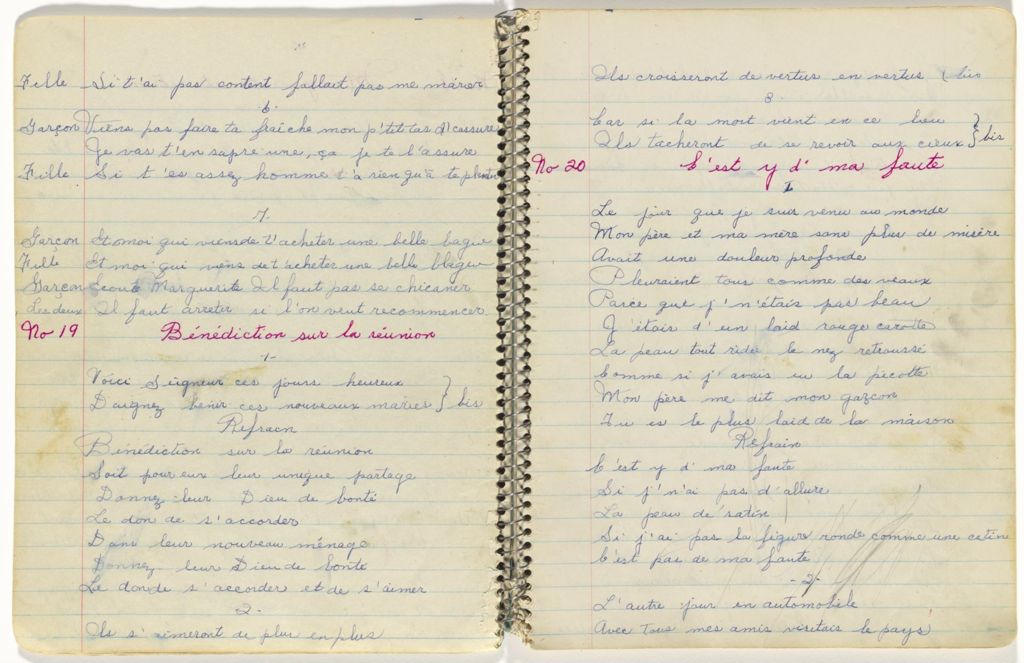 Fille Si t'ai pas content fallait pas me marier
6.
Garçon Viens pas faire ta fraîche mon p'tit tas d'cassure
Je vas t'en sapré une, ça je te l'assure
Fille Si t'es assez homme t'a rien qu'à te plaindre
7.
Garçon Et moi qui viens de t'acheter une belle bague
Fille Et moi qui viens de t'acheter une belle blague
Garçon Ecoute Marguerite Il faut pas se chicaner
Les deux Il faut arrêter si l'on veut recommencer
No 19 Bénédiction sur la réunion
1-
Voici Seigneur ces jours heureux
Daignez bénir ces nouveaux mariés } bis
Refraen
Bénédiction sur la réunion
Soit pour eux leur unique partage
Donnez-leur Dieu de bonté
Le don de s'accorder
Dans leur nouveau ménage
Donnez leur Dieu de bonté
Le don de s'accorder et de s'aimer
2-
Ils s'aimeront de plus en plus
Ils croisseront de vertus en vertus ( bis
3.
Car si la mort vient en ce lieu
Ils tacheront de se revoir aux cieux } bis
No 20 C'est y d' ma faute
I
Le jour que je suis venu au monde
Mon père et ma mère sans plus de misère
Avait une douleur profonde
Pleuraient tous comme des veaux
Parce que j'n'étais pas beau
J'étais d'un laid rouge carotte
La peau tout ridé le nez retroussé
Comme si j'avais eu la picotte
Mon père me dit mon garçon
Tu es le plus laid de la maison
Refrain
C'est y d' ma faute
Si j'n'ai pas d'allure
La peau de satin
Si j'ai pas la figure ronde comme une catin
C'est pas de ma faute
-2-
L'autre jour en automobile
Avec tous mes amis visitais le pays